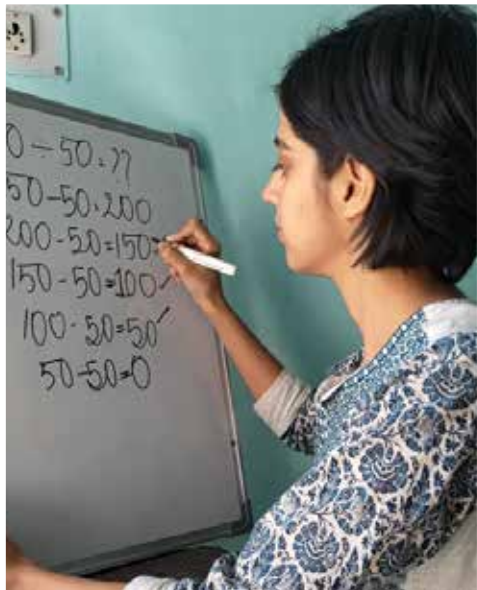 0 ÷ 50 = ??
50 - 50 = 200
200 - 50 = 150
150 - 50 = 100 ✓
100 - 50 = 50 ✓
50 - 50 = 0